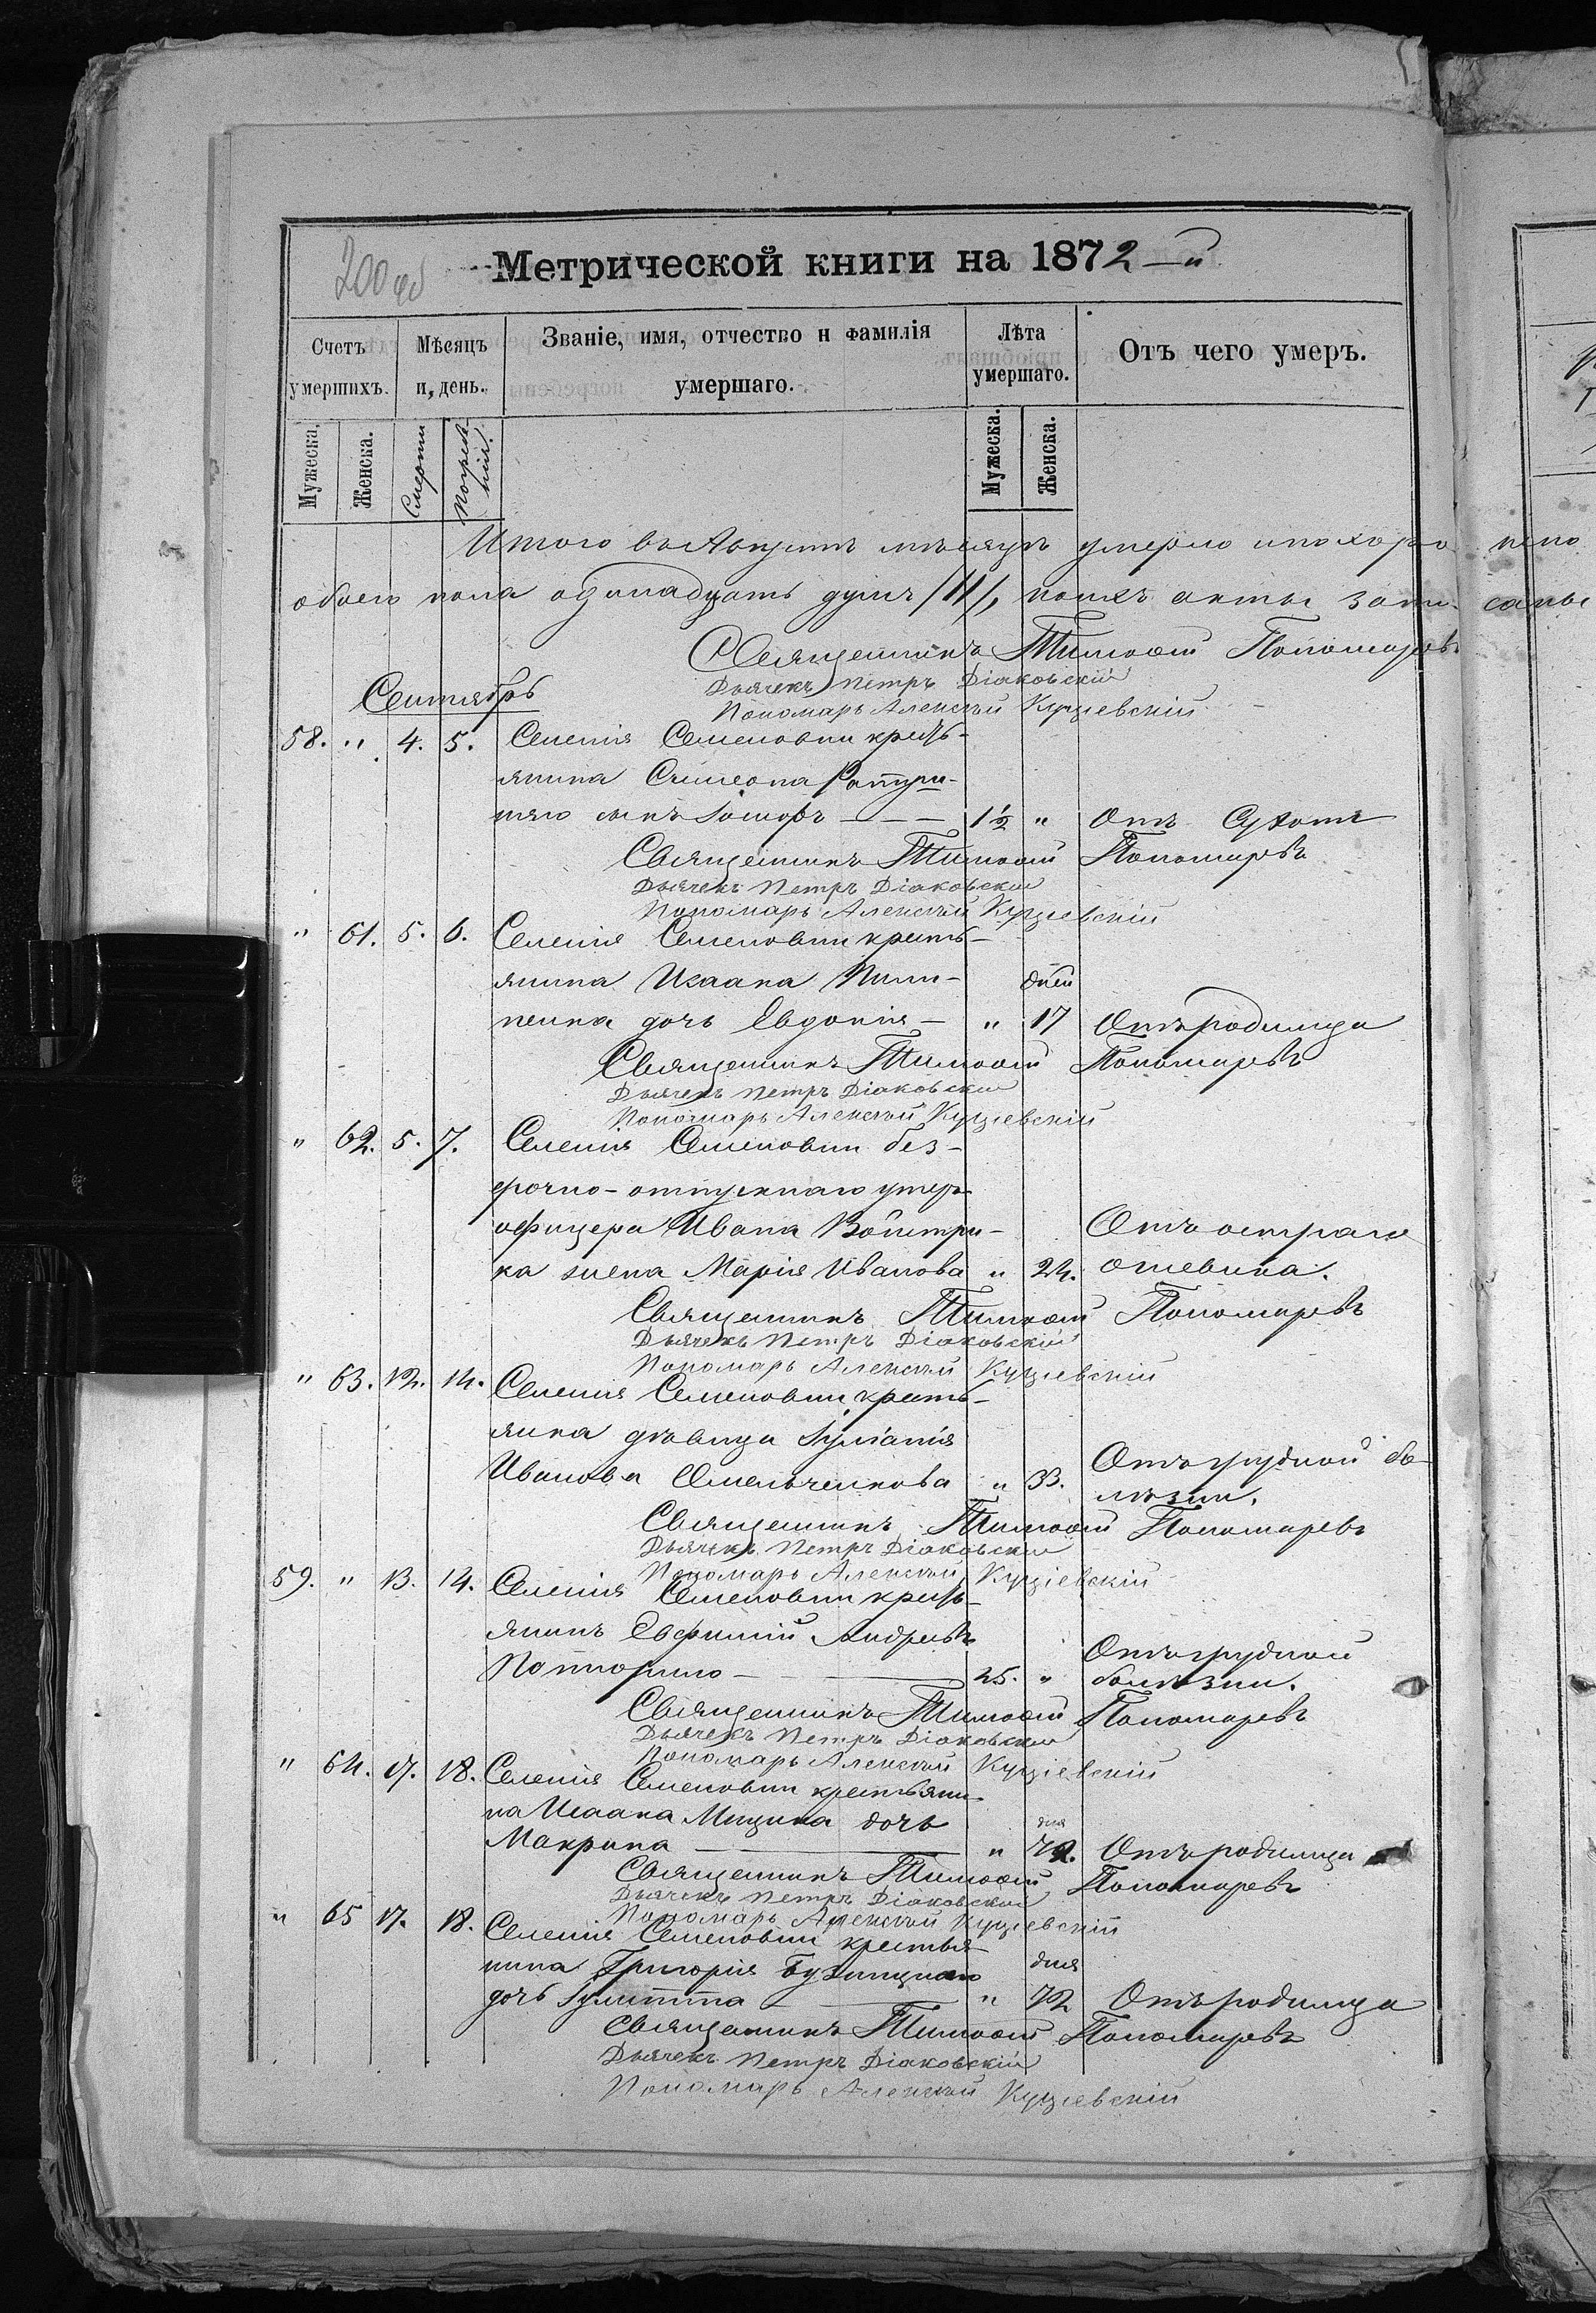 200 об
Метрической книги на 1872-й
Счетъ умершихъ.
Мѣсяцъ и, день.
Званіе, имя, отчество и фамилія умершаго.
Лѣта умершаго.
Отъ чего умеръ.
Мужеска.
Женска.
Смерти
Погребенія.
Мужеска.
Женска.
Итого въ Августѣ мѣсяцѣ умерло и похоро-нено
обоего пола одинадцать душъ /11/, коихъ акты запи-саны
Священникъ Тимоѳей Пономаревъ
Дьячекъ Петръ Діаковскій
Сентябрь
Пономарь Алексѣй
58. " 4. 5. Селенія Семеновки кресть-
янина Симеона
сынъ — — — 1½ " Отъ Сухотъ
Священникъ Тимоѳей Пономаревъ
Дьячекъ Петръ Діаковскій
Пономарь Алексѣй
" 61. 5. 6. Селенія Семеновки кресть-
янина Исаака Пили- дней
пенка дочь Евдокія — " 17 Отъ родимца
Священникъ Тимоѳей Пономаревъ
Дьячекъ Петръ Діаковскій
Пономарь Алексѣй
" 62. 5. 7. Селенія Семеновки без-
срочно-отпускнаго унтеръ
офицера Ивана Войтри- Отъ остраго
ка жена Марія Иванова " 24. огневика.
Священникъ Тимоѳей Пономаревъ
Дьячекъ Петръ Діаковскій
Пономарь Алексѣй
" 63. 12. 14. Селенія Семеновки кресть-
янка дѣвица Іуліанія
Иванова Омельченкова " 33. Отъ грудной бо-
лѣзни.
Священникъ Тимоѳей Пономаревъ
Дьячекъ Петръ Діаковскій
Пономарь Алексѣй
59. " 13. 14. Селенія Семеновки кресть-
янинъ Евфимій Андреевъ
— — 25. " Отъ грудной
болѣзни.
Священникъ Тимоѳей Пономаревъ
Дьячекъ Петръ Діаковскій
Пономарь Алексѣй
" 64. 17. 18. Селенія Семеновки крестьяни-
на Исаака Мицика дочь дня
Макрина — " Отъ родимца
Священникъ Тимоѳей Пономаревъ
Дьячекъ Петръ Діаковскій
Пономарь Алексѣй
" 65 17. 18. Селенія Семеновки крестья-
нина Григорія дня
дочь Іулитта — " Отъ родимца
Священникъ Тимоѳей Пономаревъ
Дьячекъ Петръ Діаковскій
Пономарь Алексѣй